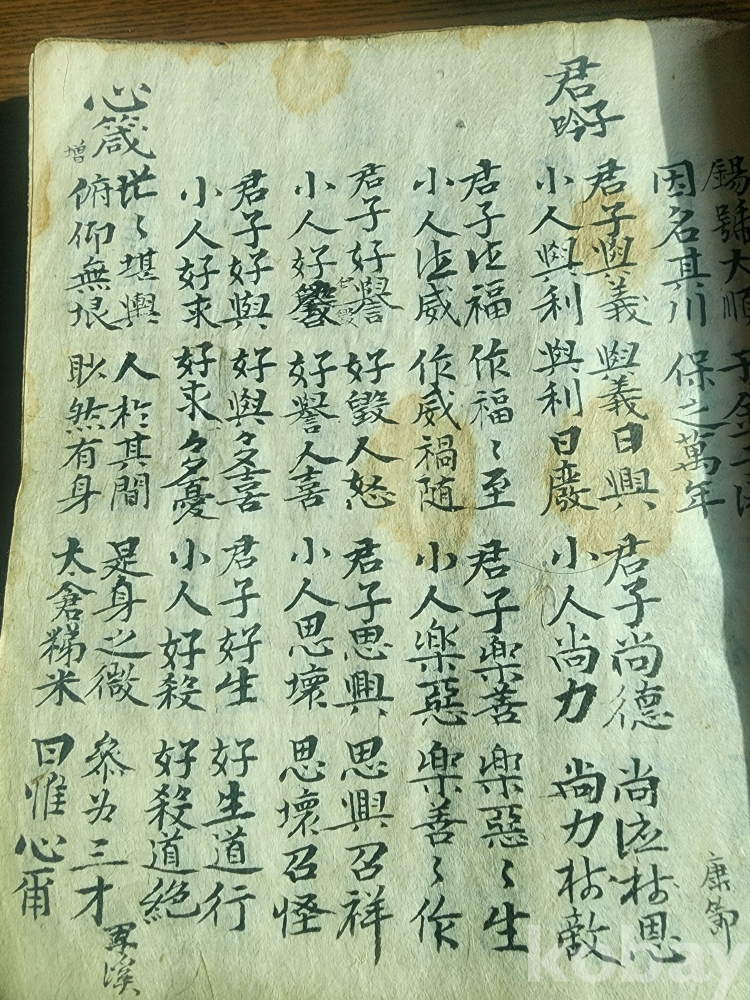 錫號大順
因名其川 保之萬年
君子吟 康節
君子與義 與義日興 君子尚德 尚德树恩
小人與利 與利日廢 小人尚力 尚力树敵
君子作福 作福〻至 君子楽善 楽惡〻生
小人作威 作威禍随 小人楽惡 楽善〻作
君子好譽 好毀人怒 君子思興 思興召祥
小人好毀 好譽人喜 小人思壞 思壞召怪
君子好與 好與多喜 君子好生 好生道行
小人好求 好求多憂 小人好殺 好殺道絕
心箴 增
茫〻堪輿 人於其間 是身之微 參为三才
俯仰無垠 眇然有身 太倉稊米 曰惟心爾
kobay